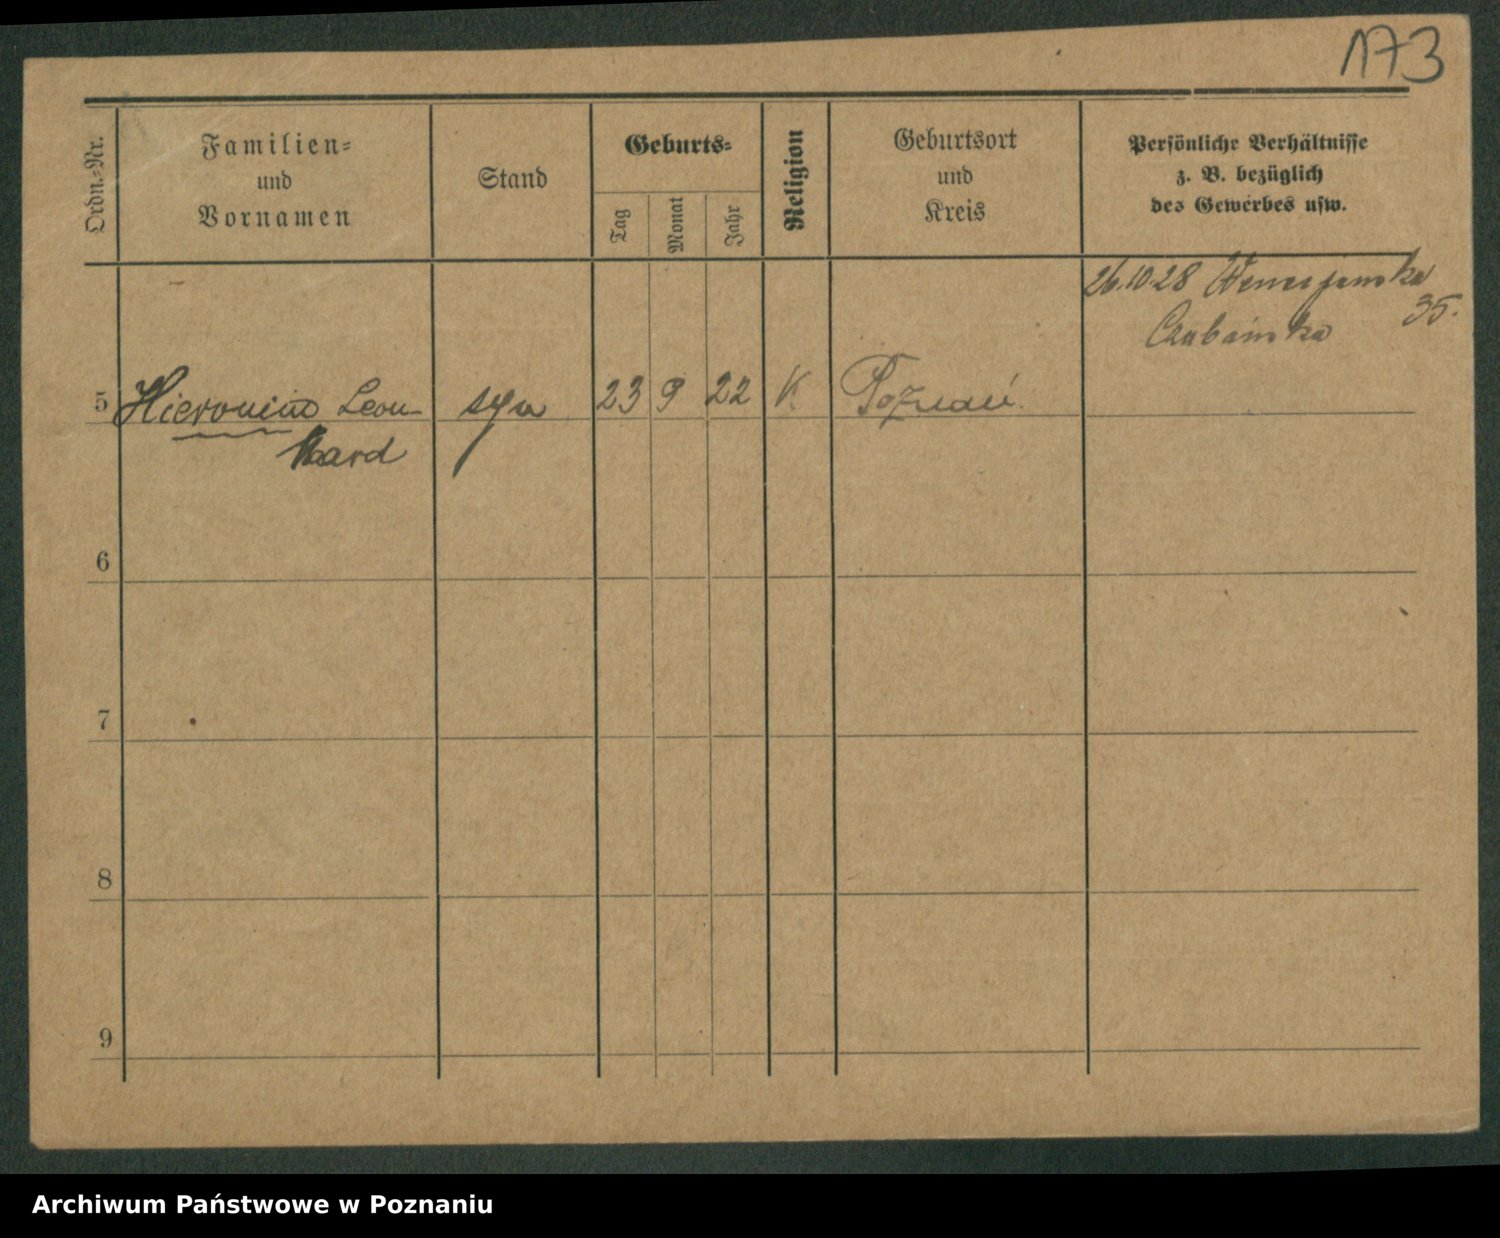 173
Ordn.-Nr.
Familien-
und
Vornamen
Stand
Geburts-
Tag
Monat
Jahr
Religion
Geburtsort
und
Kreis
Persönliche Verhältnisse
z. B. bezüglich
des Gewerbes usw.
26.10.28
35.
5 Hieronim Leon- syn 23 9 22 K Poznań
hard
6
7
8
9
Archiwum Państwowe w Poznaniu